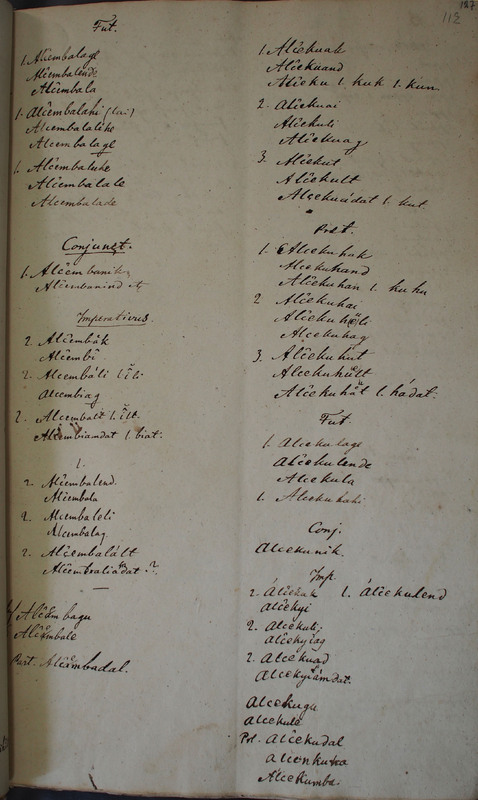 127
112
Fut.
1. Alĉembalage
Alĉembalende
Alĉembala
1. Alĉembalahi (lai)
Alĉembalalihe
Alĉembalage
1. Alĉembaluhe
Alĉembalale
Alĉembalade
Conjunct.
1. Alĉembanik
Alĉembanind
Imperativus.
2. Alĉembâk
Alĉembî
2. Alĉembâli l. îli
Alĉembiag
2. Alĉembalt l. îlt
Alĉembiamdat l. biat.
1.
2. Alĉembalend.
Alĉembala
2. Alĉembaleli
Alĉembalag
2. Alĉembalâlt
Alĉembaliadat ?.
Alĉembagu
Alĉembale
Part. Alĉembadal.
1. Alĉekuak
Alĉekuand
Alĉeku l. kuk l. kun
2. Alĉekuai
Alĉekuli
Alĉekuag
3. Alĉekut
Alĉekult
Alĉekuidat l. kut.
Pret.
1. Alĉekuhak
Alĉekuhand
Alĉekuhan l. ku hu
2 Alĉekuhai
Alĉekuhâli
Alĉekuhag
3. Alĉekuhut
Alĉekuhult
Alĉekuhât l. hádat.
Fut.
1. Alĉekulage
Alĉekulende
Alĉekula
1. Alĉekulahi
Conj.
Alĉekunik.
Imp.
2. Álĉekuk l. Álĉekulend
Alĉekyi
2. Alĉekuli;
Alĉekyiag
2. Alĉekuad
Alĉekyiâmdat.
Alĉekugu
Alĉekule
Pt. Alĉekudal
Alĉekumba.